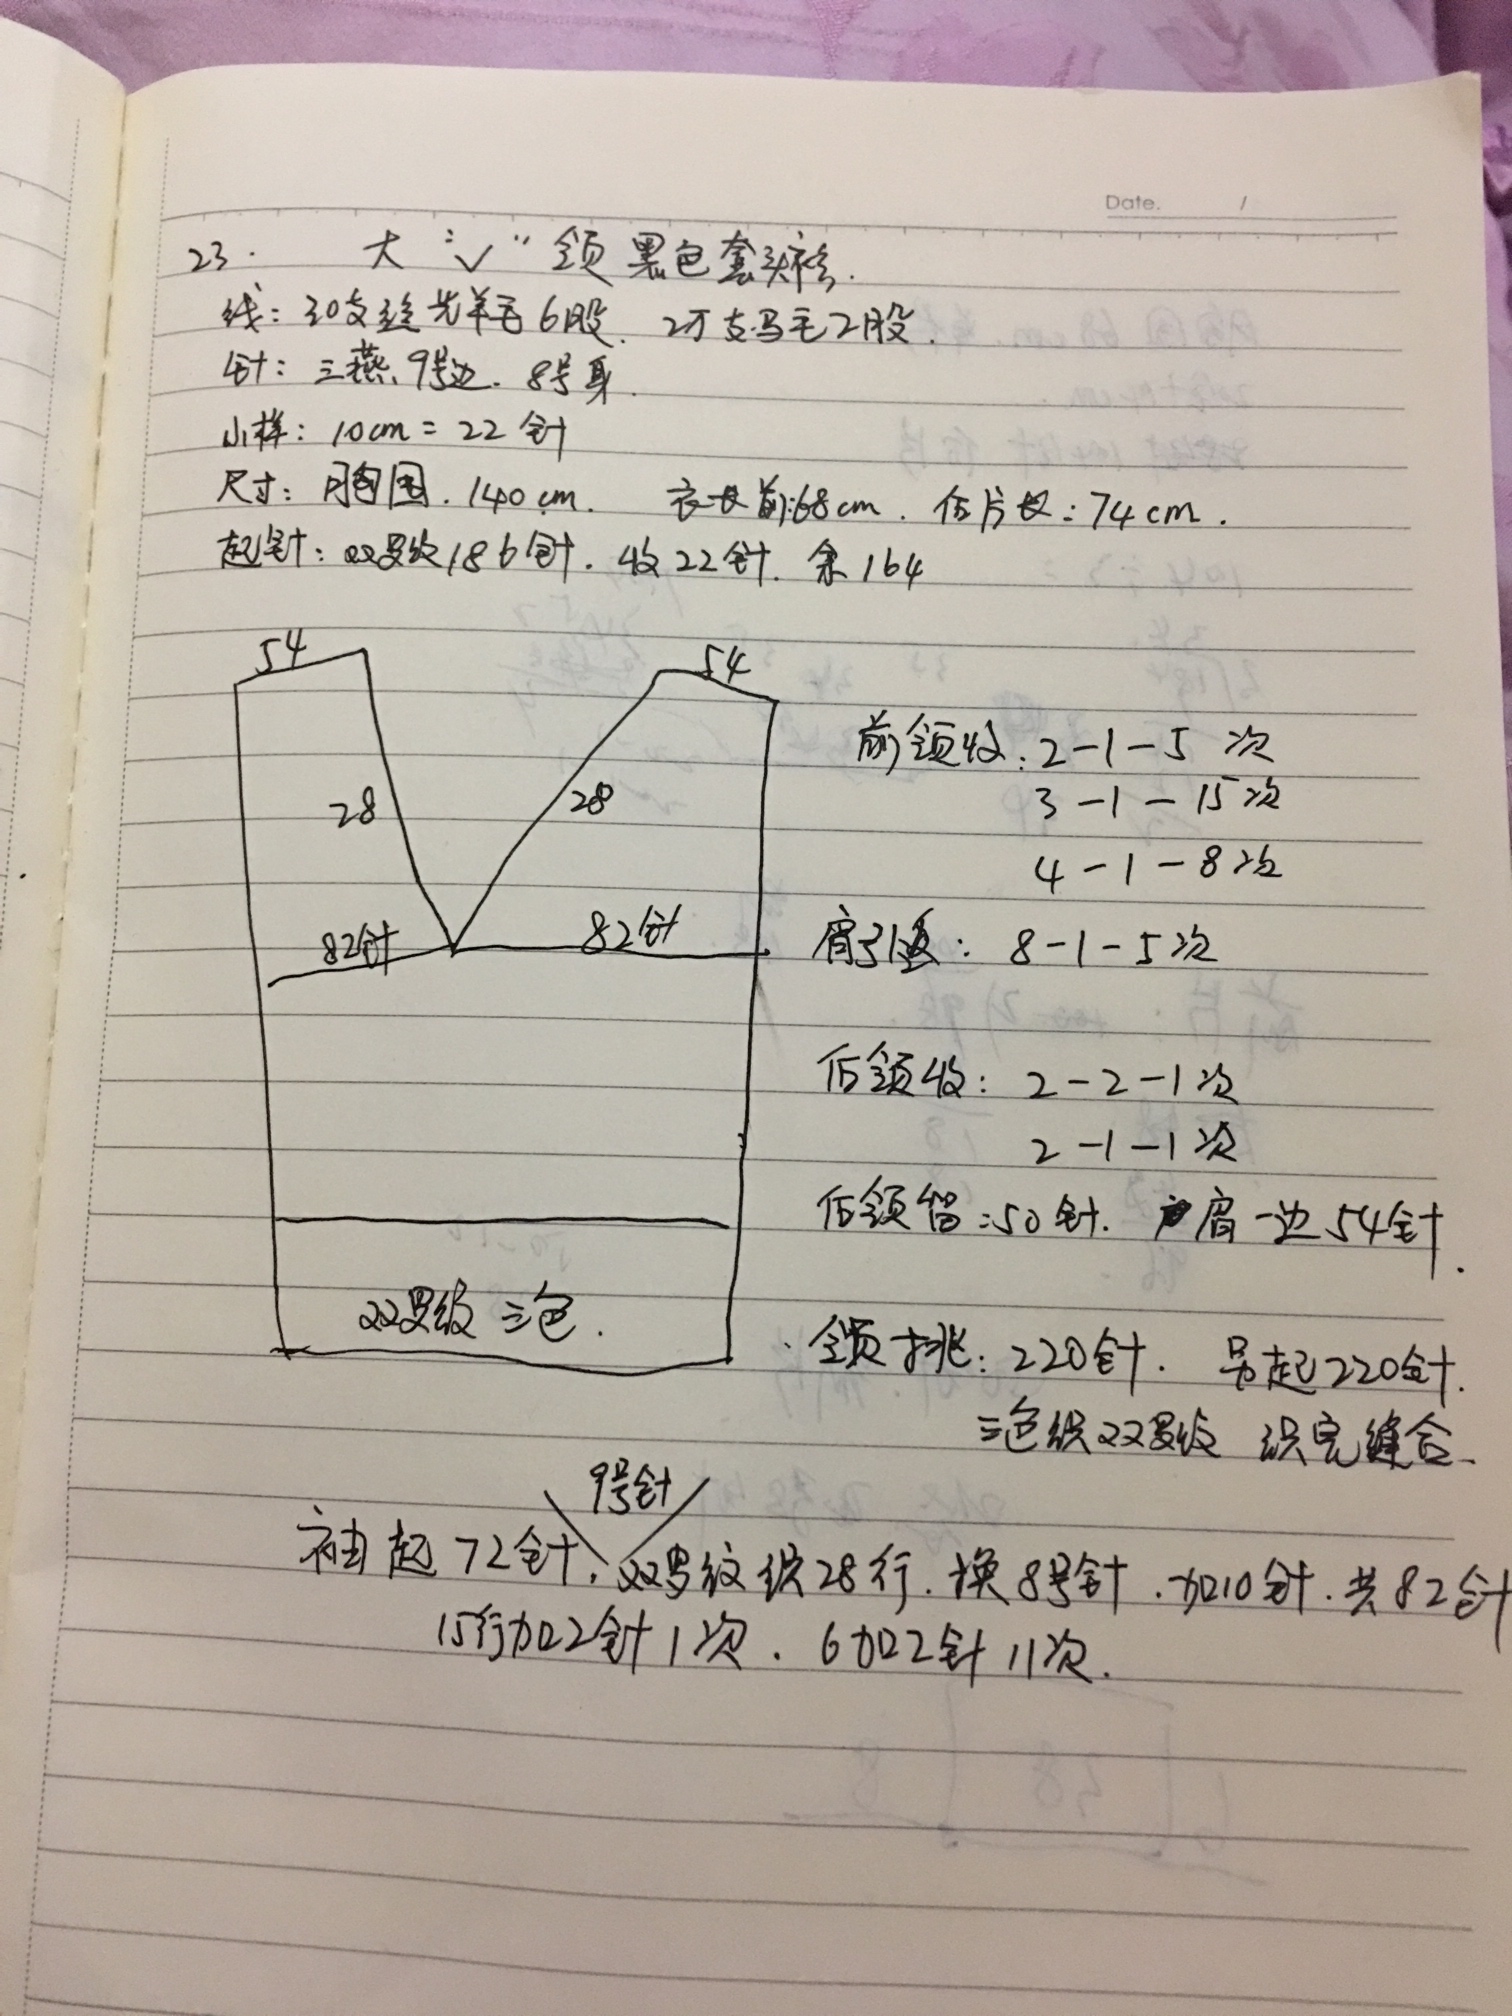 Date. /
23. 大"V"领黑色套头衫.
线: 30支丝光羊毛6股. 2万支马毛2股.
针: 三燕. 9号边. 8号身.
小样: 10cm = 22针
尺寸: 胸围. 140cm. 衣长前:68cm. 后片长: 74cm.
起针: 双罗纹186针. 收22针. 余164
54 54
28 28
82针 82针
双罗纹 三色.
前领收: 2-1-5次
3-1-15次
4-1-8次
肩引返: 8-1-5次
后领收: 2-2-1次
2-1-1次
后领留: 50针. 肩一边54针.
领挑: 220针. 另起220针.
三色织双罗纹 织完缝合.
9号针
袖起72针, 双罗纹织28行. 换8号针. 加10针. 共82针
15行加2针1次. 6加2针11次.